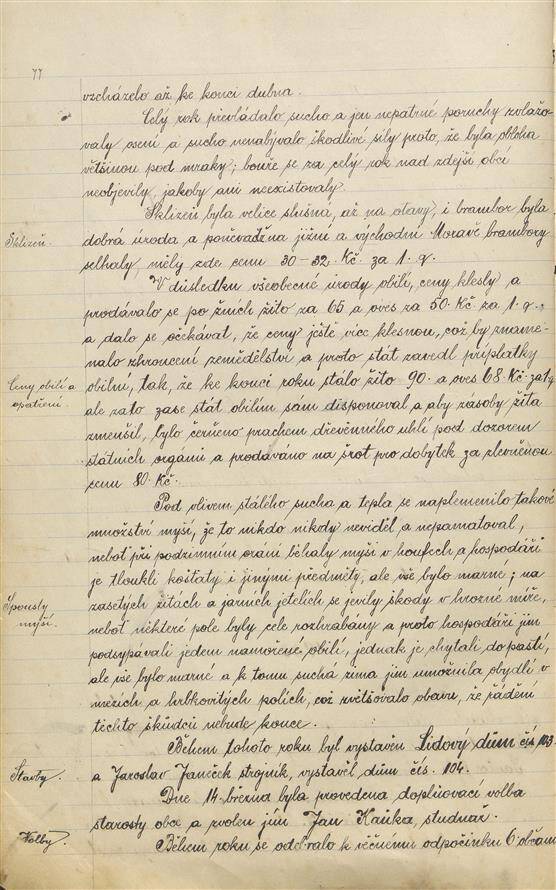 77
vzcházelo až ke konci dubna.
Celý rok převládalo sucho a jen nepatrné poruchy zvlažo-
valy osení a sucho nenabývalo škodlivé síly proto, že byla obloha
většinou pod mraky; bouře se za celý rok nad zdejší obcí
neobjevily, jakoby ani neexistovaly.
Sklizeň byla velice slušná, až na otavy, i brambor byla
Sklizeň.
dobrá úroda a poněvadž na jižní a východní Moravě brambory
selhaly, měly zde cenu 30-32 Kč. za 1. q.
V důsledku všeobecné úrody obilí, ceny klesly a
prodávalo se po žních žito za 65 a oves za 50. Kč. za 1. q.,
a dalo se očekávat, že ceny ještě více klesnou, což by zname-
nalo zhroucení zemědělství a proto stát zavedl příplatky
Ceny obilí a
opatření.
obilní, tak, že ke konci roku stálo žito 90. a oves 68. Kč. za 1 q.
ale zato zase stát obilím sám disponoval a aby zásoby žita
zmenšil, bylo černeno prachem dřevěného uhlí pod dozorem
státních orgánů a prodáváno na šrot pro dobytek za zlevněnou
cenu 80. Kč.
Pod vlivem stálého sucha a tepla se naplemenilo takové
množství myší, že to nikdo nikdy neviděl, a nepamatoval,
neboť při podzimním orání běhaly myši v houfech a hospodáři
je tloukli košťaty i jinými předměty, ale vše bylo marné; na
Spousty
myší.
zasetých žitách a jarních jetelích se jevily škody v hrozné míře,
neboť některé pole byly cele rozhrabány a proto hospodáři jim
podsypávali jedem namořené obilí, jednak je chytali do pastí,
ale vše bylo marné a k tomu suchá zima jim umožnila obydlí v
mezích a hrbkovitých polích, což zvětšovalo obavu, že řádění
těchto škůdců nebude konce.
Během tohoto roku byl vystavěn Lidový dům čís. 103.
Stavby.
a Jaroslav Janeček strojník, vystavěl dům čís. 104.
Dne 14. března byla provedena doplňovací volba
starosty obce a zvolen jím Jan Kaňka, studnař.
Volby.
Během roku se odebralo k věčnému odpočinku 6 občanů